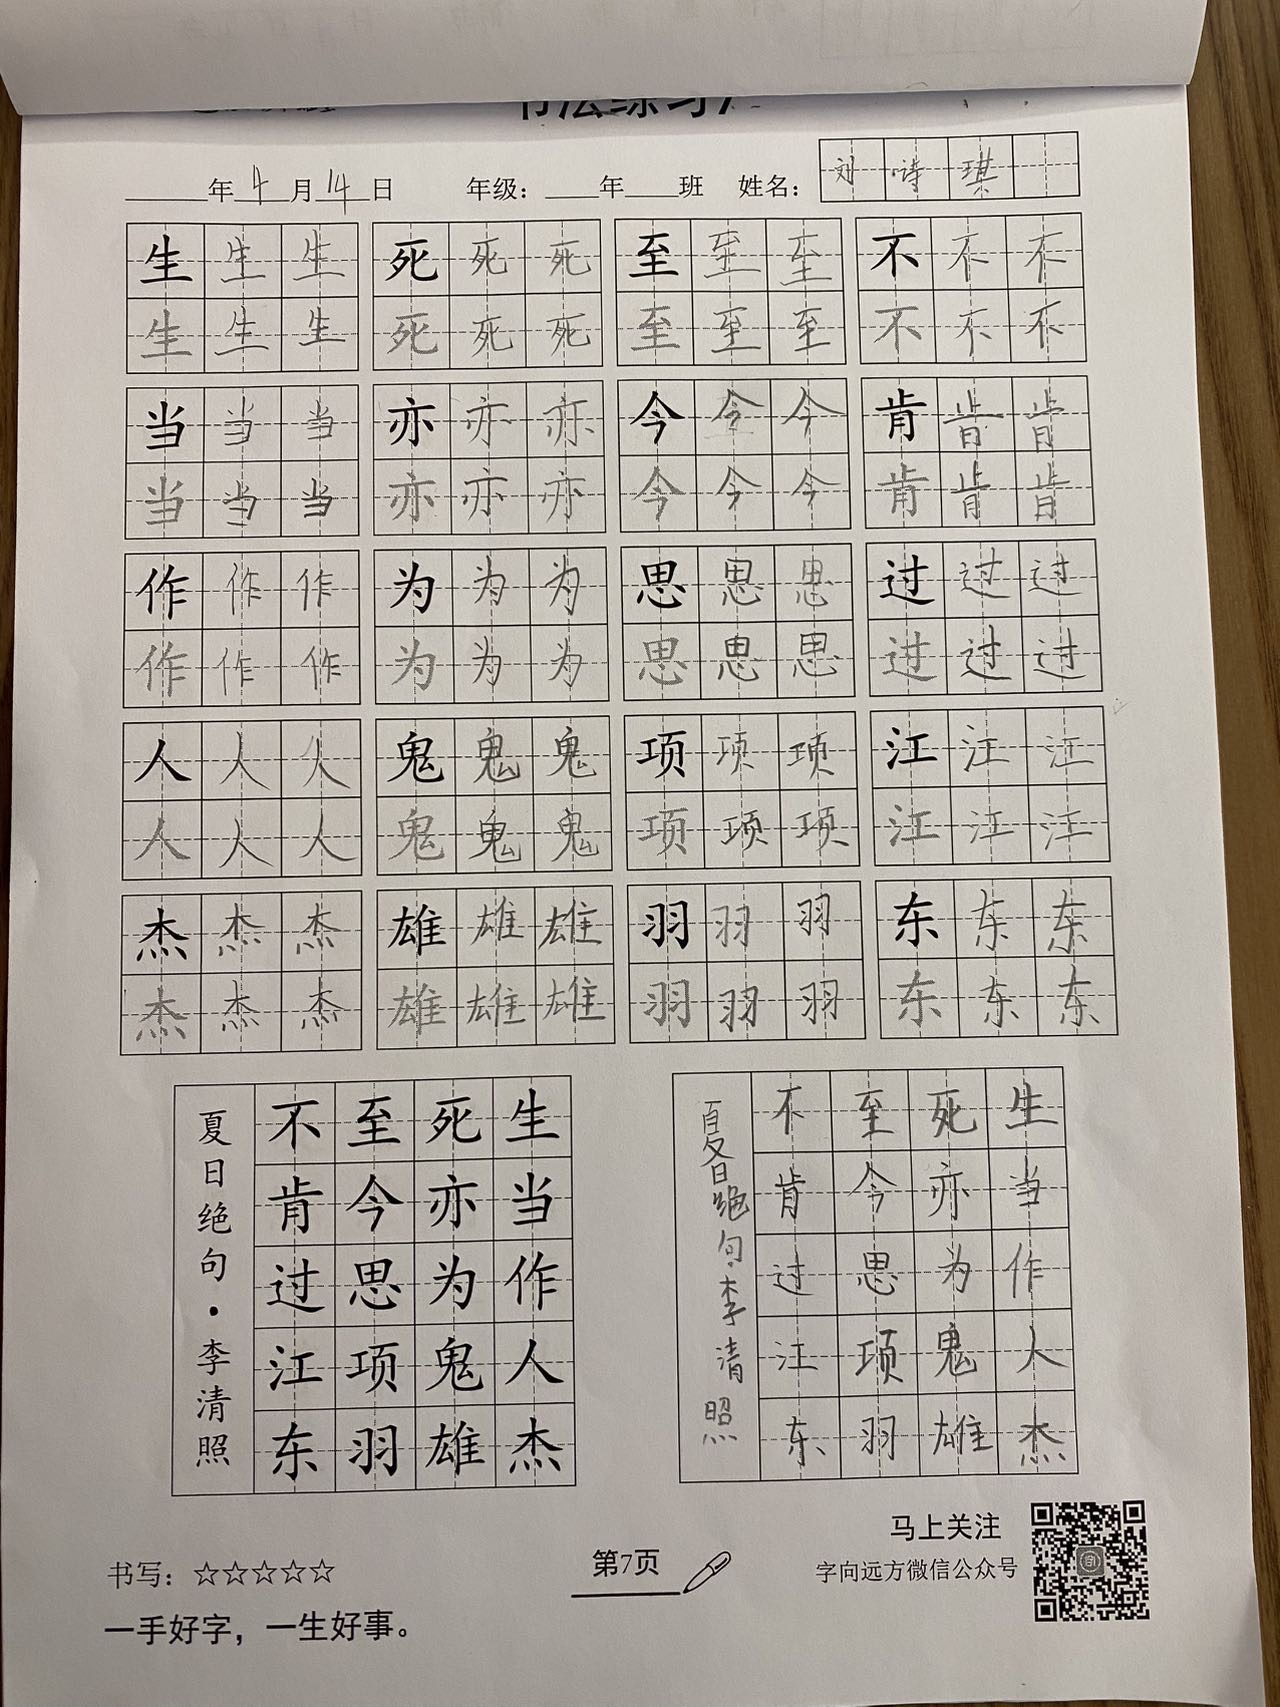 书法练习
年4月14日 年级：年班 姓名：刘诗琪
生生生 死死死 至至至 不不不
生生生 死死死 至至至 不不不
当当当 亦亦亦 今今今 肯肯肯
当当当 亦亦亦 今今今 肯肯肯
作作作 为为为 思思思 过过过
作作作 为为为 思思思 过过过
人人人 鬼鬼鬼 项项项 江江江
人人人 鬼鬼鬼 项项项 江江江
杰杰杰 雄雄雄 羽羽羽 东东东
杰杰杰 雄雄雄 羽羽羽 东东东
生当作人杰
死亦为鬼雄
至今思项羽
不肯过江东
夏日绝句·李清照
生当作人杰
死亦为鬼雄
至今思项羽
不肯过江东
夏日绝句·李清照
马上关注
字向远方微信公众号
书写：☆☆☆☆☆
第7页
一手好字，一生好事。